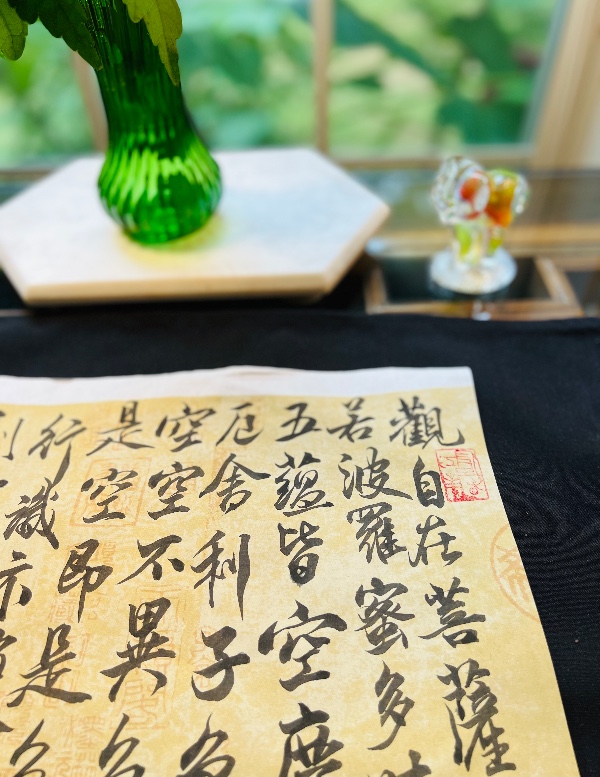 觀自在菩薩
若波羅蜜多
五蘊皆空度
厄舍利子色
空空不異色
是空即是色
行識亦